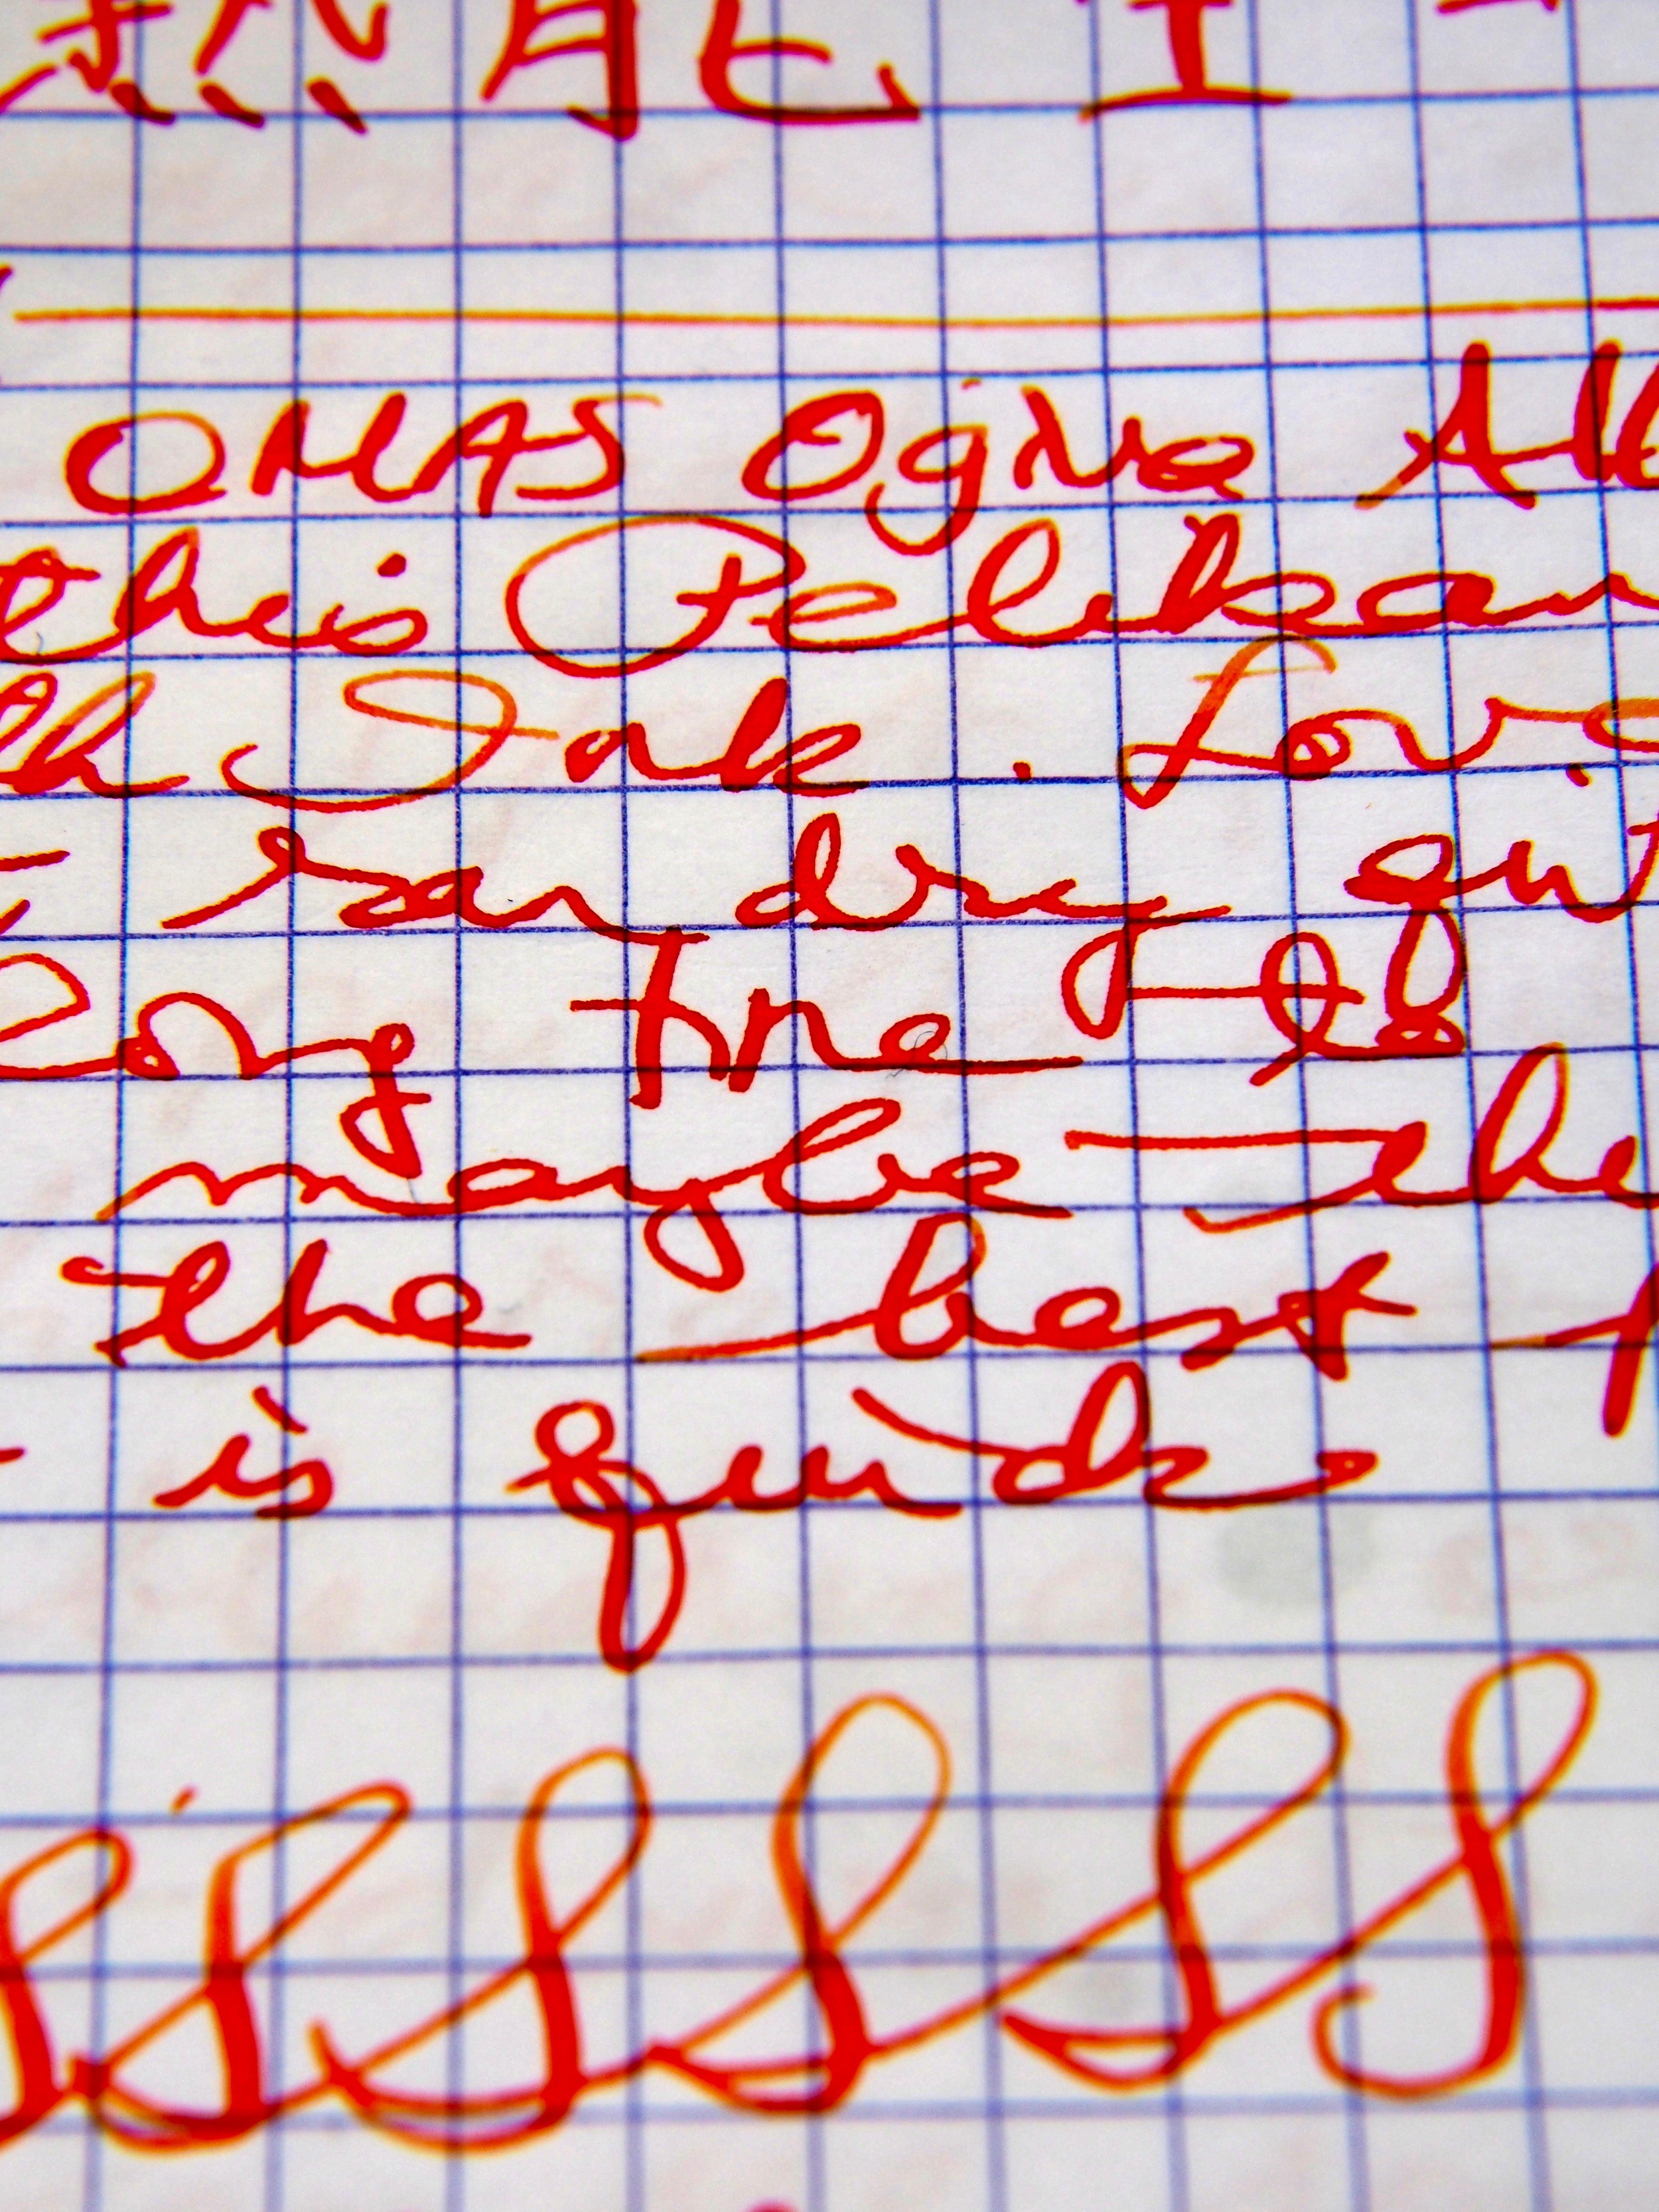 熊 能 工
OMAS Ogiva Alb
this Pelikan
Ink. Love
ran dry quit
long time to
maybe the
the best
is quick
SSSSSS